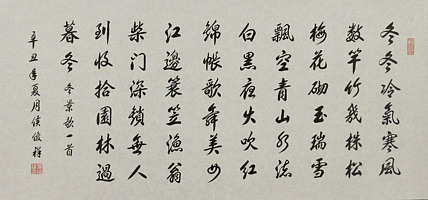 冬冬冷氣寒風
數竿竹幾株松
梅花砌玉瑞雪
飄空青山
白黑夜火吹紅
錦帳歌舞美女
江邊蓑笠漁翁
柴門深鎖無人
到收拾園林過
暮冬 冬景歌一首
辛丑年夏月侯俊祥